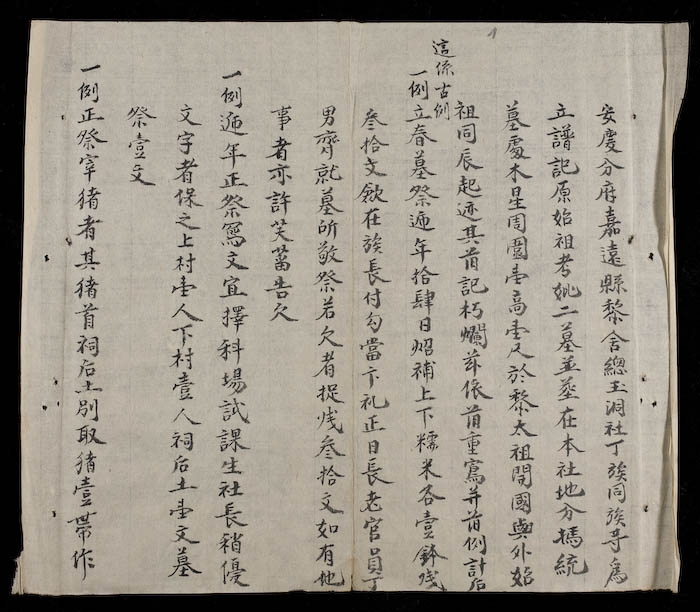 安慶分府嘉遠縣黎舍總玉洞社丁族同族等為
立譜記原始祖考妣二墓並塟在本社地分撝統
墓處木星周圍壹高壹尺於黎太祖開國與外始
祖同辰起迹其首記朽爛茲依首重寫并首例計后
這係古例
一例立春墓祭逓年拾肆日炤補上下糯米各壹鉢戋
叁拾文歛在族長付勾當卞礼正日長老官員丁
男齊就墓所敬祭若欠者捉戋叁拾文如有他
事者亦許芙蒥告欠
一例逓年正祭寫文宜擇科場試課生社長稍優
文字者保之上村壹人下村壹人祠后土壹文墓
祭壹文
一例正祭宰猪者其猪首祠后土別取猪壹帶作